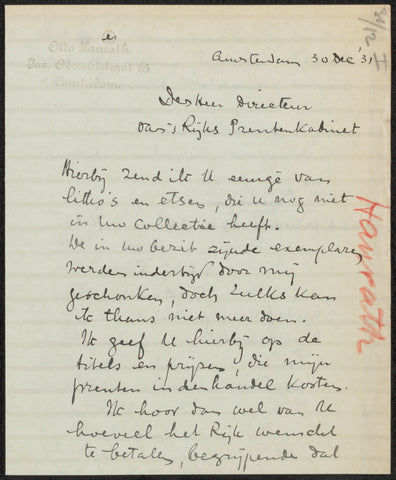 Otto Hanrath
Jac. Obrechtstraat 65
Amsterdam
Amsterdam 30 Dec '31
Den Heer Directeur
van 's Rijks Prentenkabinet
Hierbij zend ik U eenige van
litho's en etsen, die u nog niet
in Uw Collectie heeft.
De in Uw bezit zijnde exemplaren
werden indertijd door mij
geschonken, doch zulks kan
ik thans niet meer doen.
Ik geef U hierbij op de
titels en prijzen, die mijn
prenten in den handel kosten.
Ik hoor dan wel van U
hoeveel het Rijk wenscht
te betalen, begrijpende dat
Hanrath